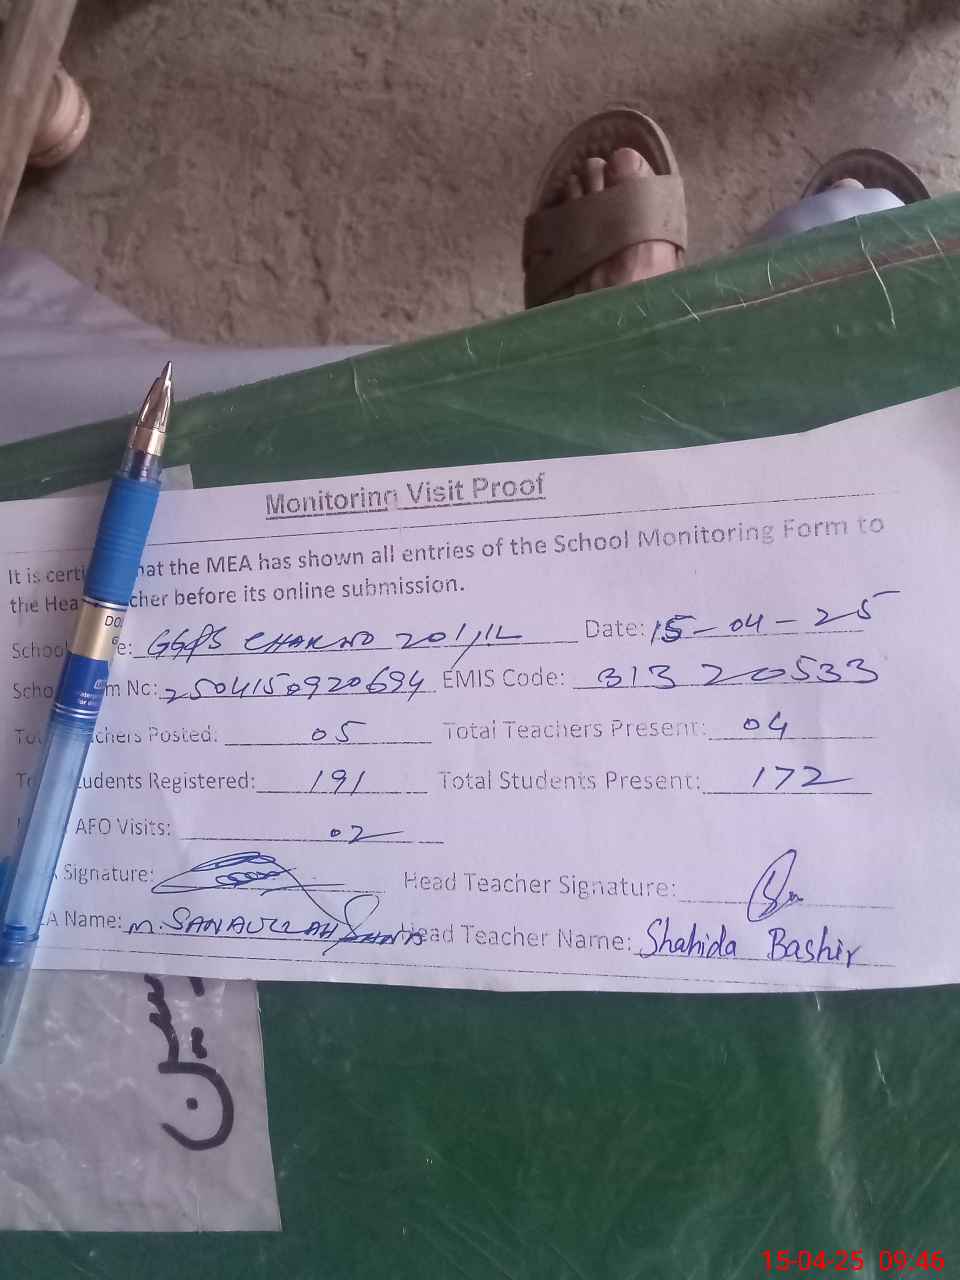 Monitoring Visit Proof
It is certi hat the MEA has shown all entries of the School Monitoring Form to
the Hea cher before its online submission.
School e: GGPS CHAK NO 201/1L Date: 15-04-25
Scho m No: 2504150920694 EMIS Code: 31320533
To chers Posted: 05 Total Teachers Present: 04
T udents Registered: 191 Total Students Present: 172
AEO Visits: 02
Signature: Head Teacher Signature:
A Name: M. SANAULLAH Head Teacher Name: Shahida Bashir
15-04-25 09:46